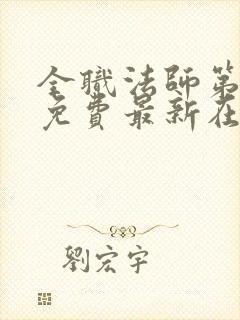 全職法師第
免費最新在
劉宏宇